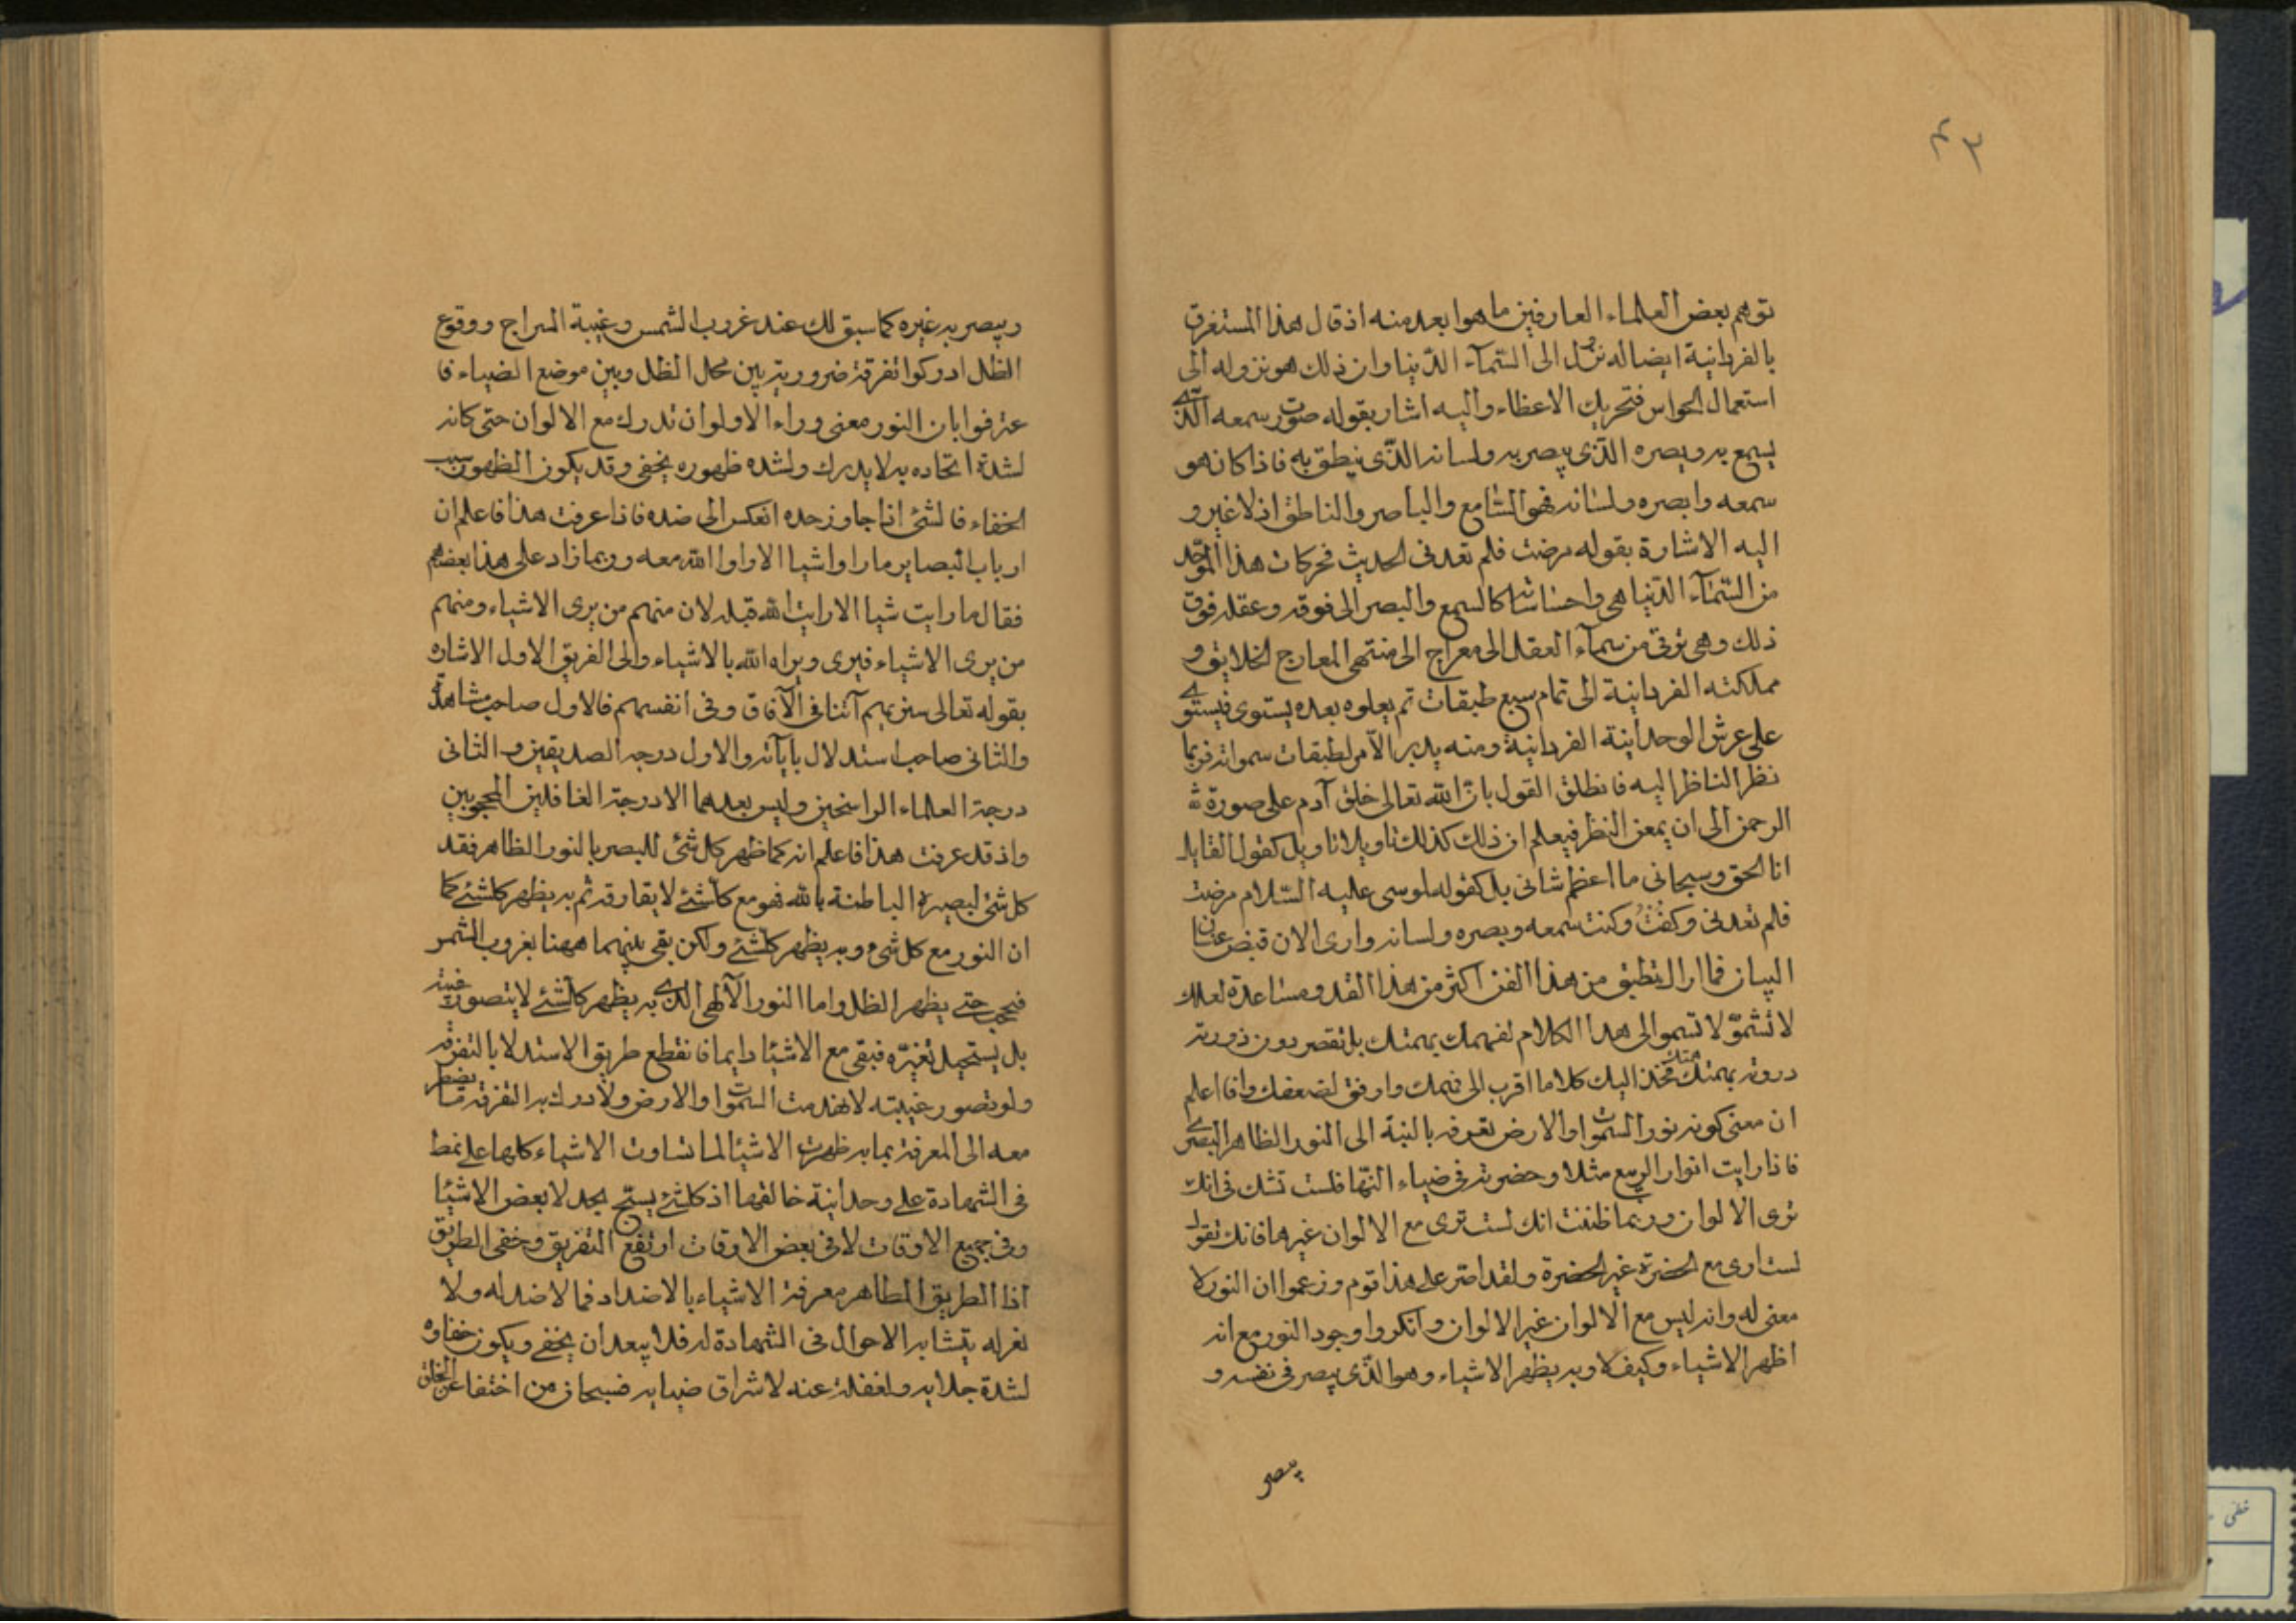 ٤٣
توهم بعض العلماء العارفين ما هو ابعد منه اذ قال هذا المستغرق
بالفردانية ايضا له نزول الى السّمآء الدّنيا وان ذلك هو نزوله الى
استعمال الحواس فتحريك الاعظاء واليه اشار بقوله صرت سمعه الّذى
يسمع به وبصره الّذى يبصر به ولسانه الّذى ينطق به فاذا كان هو
سمعه وابصره ولسانه فهو السّامع والباصر والناطق اذ لا غير و
اليه الاشارة بقوله مرضت فلم تعدنى الحديث فحركات هذا الموّحد
من السّمآء الدّنيا هى واحساساته كالسمع والبصر الى فوقه وعقله فوق
ذلك وهى توقى من سمآء العقل الى معراج الى منتهى المعارج الخلايق و
مملكته الفردانية الى تمام سبع طبقات ثم يعلوه بعده يستوى فيستوى
على عرش الوحدانية الفردانية ومنه يدبر الآمر لطبقات سمواته فربما
نظر الناظر اليه فانطلق القول بانّ الله تعالى خلق آدم على صورة
الرحمن الى ان يمعن النظر فيعلم ان ذلك كذلك تاويلا تاويل كقول القايل
انا الحق وسبحانى ما اعظم شانى بل كقوله لموسى عليه السّلام مرضت
فلم تعدنى وكنت سمعه وبصره ولسانه وارى الان قبض عنان
البيان فما اراك تطيق من هذا الفن اكثر من هذا القدر ومساعدة لعلك
لا تسّموّ لا تسمو الى هذا الكلام لفهمك بهمتك بل تقصر دون ذروته
دروته بهمتك همتك فخذ اليك كلاما اقرب الى فهمك واوفق لضعفك وافا اعلم
ان معنى كونه نور السّموات والارض تعرفه بالنسبة الى النور الظاهر البصرى
فاذا رايت انوار الربيع مثلا وحضرته فى ضياء النّهار فلست تشك فى انك
ترى الالوان وربما ظننت انك لست ترى مع الالوان غيرها فانك تقول
لست ارى مع الحضرة غير الحضرة ولقد اصّر على هذا قوم وزعموا ان النور لا
معنى له وانه ليس مع الالوان غير الالوان وانكروا وجود النور مع انه
اظهر الاشياء وكيف لا وبه يظهر الاشياء وهو الّذى يبصر فى نفسه و
يبصر
ويبصر به غيره كما سبق لك عند غروب الشمس وغيبة السراج ووقوع
الظل ادركوا تفرقة ضرورية بين محل الظل وبين موضع الضياء فا
عترفوا بان النور معنى وراء الاولوان تدرك مع الالوان حتى كانه
لشدة اتحاده به لا يدرك ولشده ظهوره يخفى وقد يكون الظهور سبب
الخفاء فالشئ اذا جاوز حده انعكس الى ضده فاذا عرفت هذا فاعلم ان
ارباب البصاير ما راوا شيا الا راوا الله معه وربما زاد على هذا بعضهم
فقال ما رايت شيا الا رايت الله قبله لان منهم من يرى الاشياء ومنهم
من يرى الاشياء فيرى ويراه الله بالاشياء والى الفريق الاول الاشاره
بقوله تعالى سنريهم آتنا فى الآفاق وفى انفسهم فالاول صاحب مشاهدّة
والثانى صاحب استدلال باياته والاول درجه الصديقين والثانى
درجة العلماء الراسخين وليس بعدهما الا درجة الغافلين المحجوبين
واذ قد عرفت هذا فاعلم انه كما ظهر كل شئ للبصر بالنور الظاهر فقد
كل شئ لبصيرة الباطنة بالله فهو مع كلشئ لا يفارقه ثم به يظهر كلشئ كما
ان النور مع كل شئ وبه يظهر كلشئ ولكن بقى بينهما ههنا بغروب الشمس
فيحجب حتى يظهر الظل واما النور الآلهى الّذى به يظهر كلشئ لا يتصور غيبته
بل يستحيل تغيرّه فبقى مع الاشيا دايما فانقطع طريق الاستدلا بالتفرقه
ولو تصور غيبته لانهدمت السّموات والارض ولادرك به التفرقه ما يضطر
معه الى المعرفة بما به ظهرت الاشيا لما تساوت الاشياء كلها على نمط
فى الشهادة على وحدانية خالقها اذ كلشئ يستج بحمد لا بعض الاشيا
وفى جميع الاوقات لا فى بعض الاوقات ارتفع التفريق وخفى الطريق
اذا الطريق الظاهر معرفة الاشياء بالاضداد فما لا ضد له ولا
تغر له يتشابه الاحوال فى الشهادة له فلا يبعد ان يخفى ويكون خفاوه
لشدة جلايه ولغفلة عنه لاشراق ضيايه فسبحان من اختفا عن الخلق
خطى